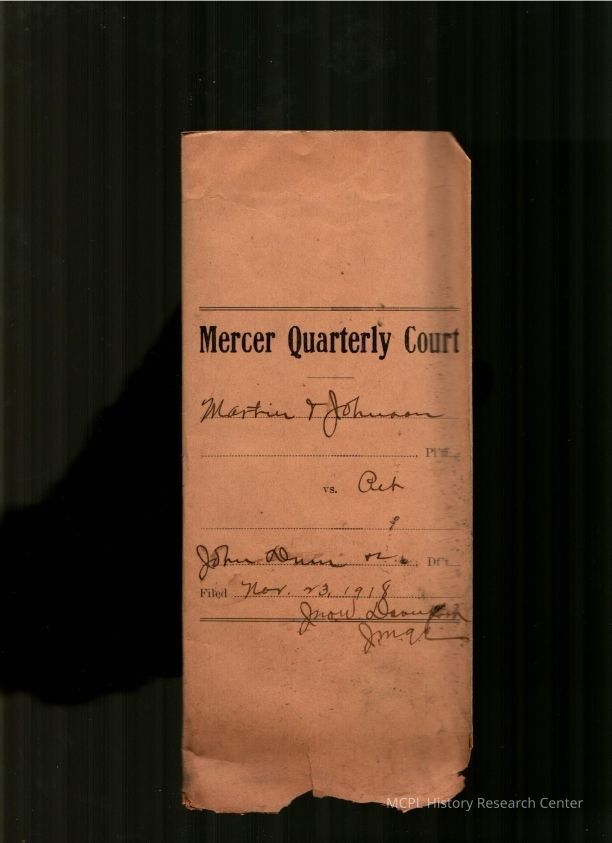 Mercer Quarterly Court
Martin & Johnson
Plff
vs. Pet
John Dunn sr., Dft
Filed Nov. 23, 1918
Jno W. Davenport
MCPL History Research Center